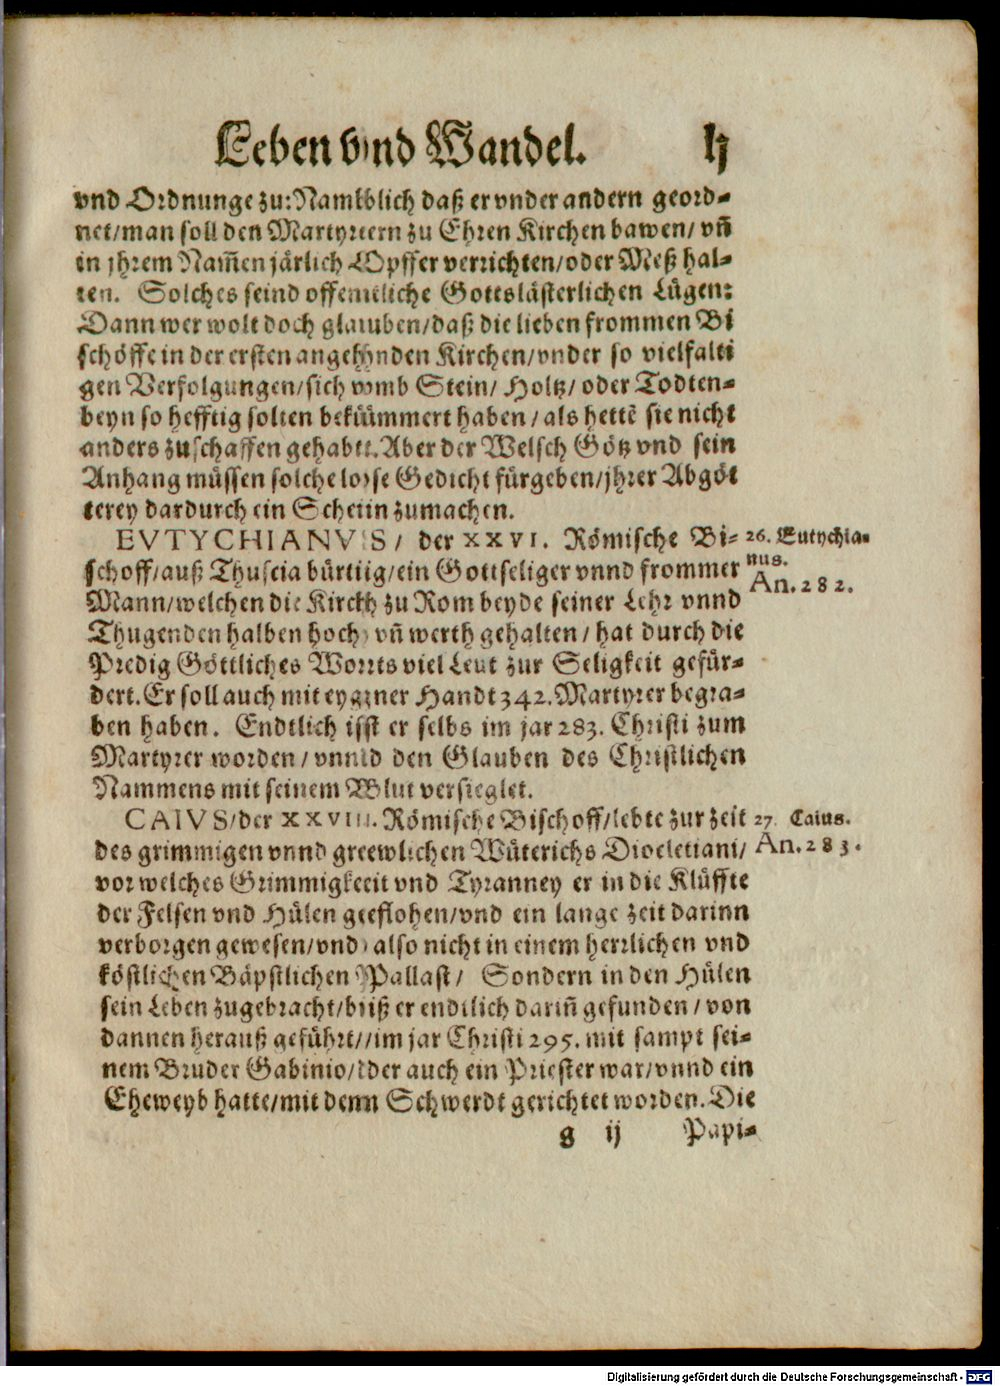 Leben vnd Wandel. lj
vnd Ordnunge zu: Namblich daß er vnder andern geord⸗
net/man soll den Martyrern zu Ehren Kirchen bawen/ vn̄
in jhrem Nam̄en järlich Opffer verrichten/oder Meß hal⸗
ten. Solches seind offentliche Gottslästerlichen Lügen:
Dann wer wolt doch glauben/daß die lieben frommen Bi
schöffe in der ersten angehnden Kirchen/vnder so vielfalti
gen Verfolgungen/sich vmb Stein/ Holtz/ oder Todten⸗
beyn so hefftig solten bekümmert haben/als hettē sie nicht
anders zuschaffen gehabt. Aber der Welsch Götz vnd sein
Anhang müssen solche lose Gedicht fürgeben/jhrer Abgöt
terey dardurch ein Schein zumachen.
EVTYCHIANVS/ der XXVI. Römische Bi⸗
26. Eutychia⸗
nus.
An. 282.
schoff/auß Thuscia bürtig/ein Gottseliger vnnd frommer
Mann/welchen die Kirch zu Rom beyde seiner Lehr vnnd
Thugenden halben hoch vn̄ werth gehalten/ hat durch die
Predig Göttliches Worts viel Leut zur Seligkeit gefür⸗
dert. Er soll auch mit eygner Handt 342. Martyrer begra⸗
ben haben. Endtlich ist er selbs im jar 283. Christi zum
Martyrer worden/ vnnd den Glauben des Christlichen
Nammens mit seinem Blut versieglet.
CAIVS/der XXVII. Römische Bischoff/lebte zur zeit
27. Caius.
An. 283.
des grimmigen vnnd grewlichen Wüterichs Diocletiani/
vor welches Grimmigkeit vnd Tyranney er in die Klüffte
der Felsen vnd Hülen geflohen/vnd ein lange zeit darinn
verborgen gewesen/vnd also nicht in einem herrlichen vnd
köstlichen Bäpstlichen Pallast/ Sondern in den Hülen
sein Leben zugebracht/biß er endtlich darin̄ gefunden/von
dannen herauß geführt/im jar Christi 295. mit sampt sei⸗
nem Bruder Gabinio/der auch ein Priester war/vnnd ein
Eheweyb hatte/mit dem Schwerdt gerichtet worden. Die
g ij Papi⸗
Digitalisierung gefördert durch die Deutsche Forschungsgemeinschaft - DFG